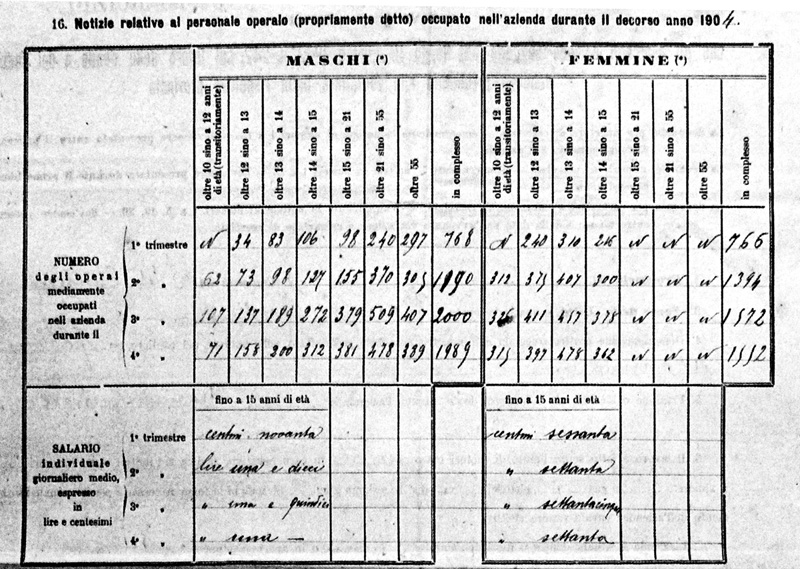 16. Notizie relative al personale operaio (propriamente detto) occupato nell'azienda durante il decorso anno 1904.
MASCHI (*) FEMMINE (*)
oltre 10 sino a 12 anni di età (transitoriamente) oltre 12 sino a 13 oltre 13 sino a 14 oltre 14 sino a 15 oltre 15 sino a 21 oltre 21 sino a 55 oltre 55 in complesso oltre 10 sino a 12 anni di età (transitoriamente) oltre 12 sino a 13 oltre 13 sino a 14 oltre 14 sino a 15 oltre 15 sino a 21 oltre 21 sino a 55 oltre 55 in complesso
NUMERO degli operai mediamente occupati nell azienda durante il
1º trimestre N 34 83 106 98 240 297 768 N 240 310 N N N 766
2º " 62 73 98 127 155 370 305 1190 312 375 407 300 N N N 1394
3º " 107 137 189 272 379 509 407 2000 326 411 457 378 N N N 1572
4º " 71 158 200 312 381 478 389 1989 315 397 478 362 N N N 1552
fino a 15 anni di età fino a 15 anni di età
SALARIO individuale giornaliero medio, espresso in lire e centesimi
1º trimestre centmi novanta centmi sessanta
2º " lire una e dieci " settanta
3º " " una e quindici " settantacinque
4º " " una — " settanta